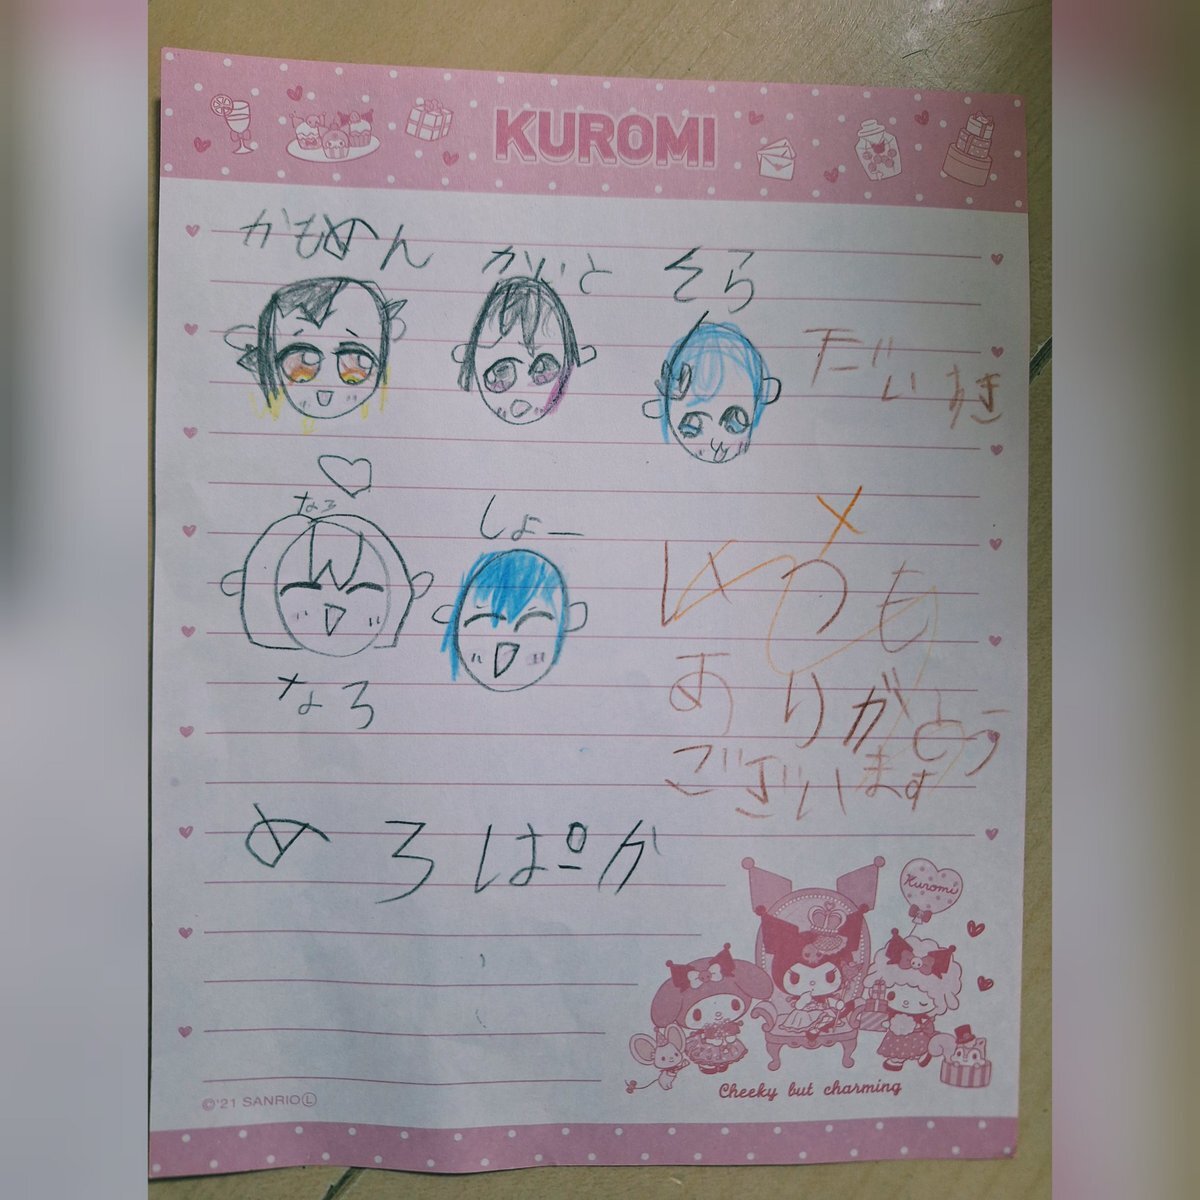 KUROMI
かもめん
かいと
そら
だいすき
なろ
しょー
なろ
いつも
ありがとう
ございます
めろぱか
Kuromi
Cheeky but charming
©'21 SANRIO Ⓛ